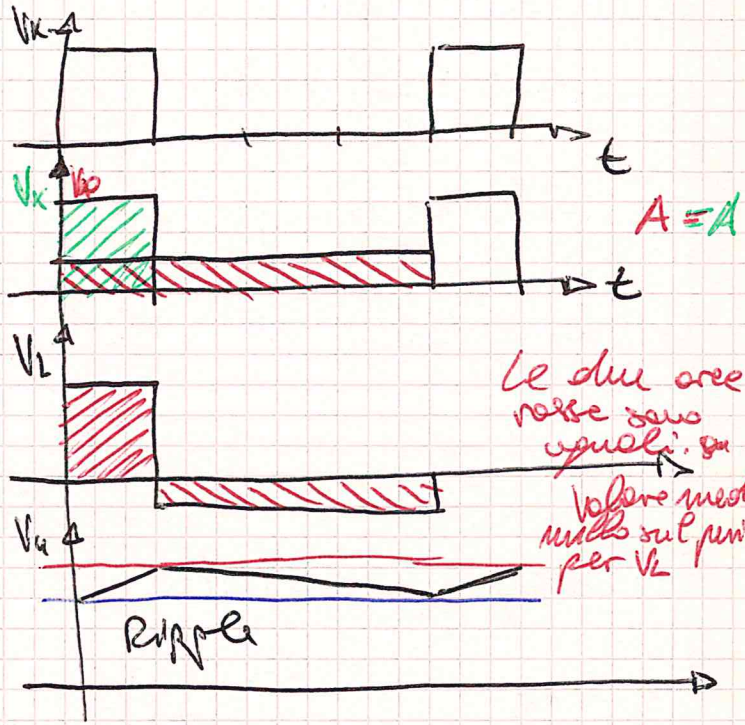 VK
t
VK
t
A = A
VL
Le due aree
rosse sono
uguali.
Valore med
nullo sul peri
per VL
Vu
Ripple